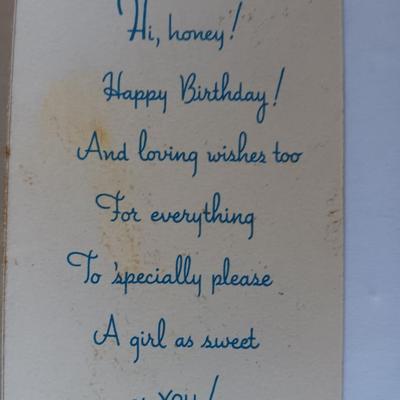 Hi, honey!
Happy Birthday!
And loving wishes too
For everything
To 'specially please
A girl as sweet
as YOU!